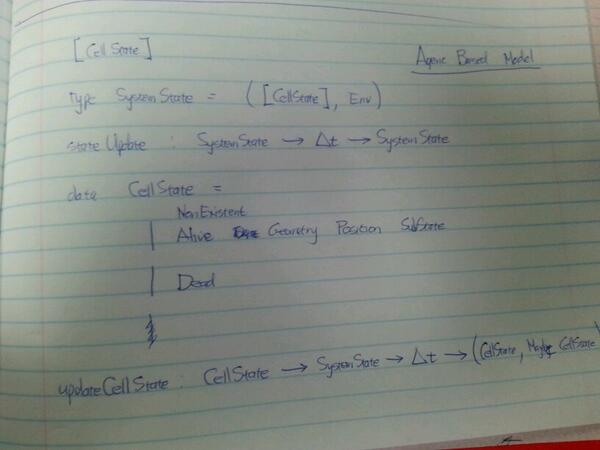 [Cell State]
Agent Based Model
type SystemState = ([CellState], Env)
stateUpdate : SystemState → Δt → SystemState
data CellState =
NonExistent
| Alive Geometry Position SubState
| Dead
|
updateCellState : CellState → SystemState → Δt → (CellState, Maybe CellState)